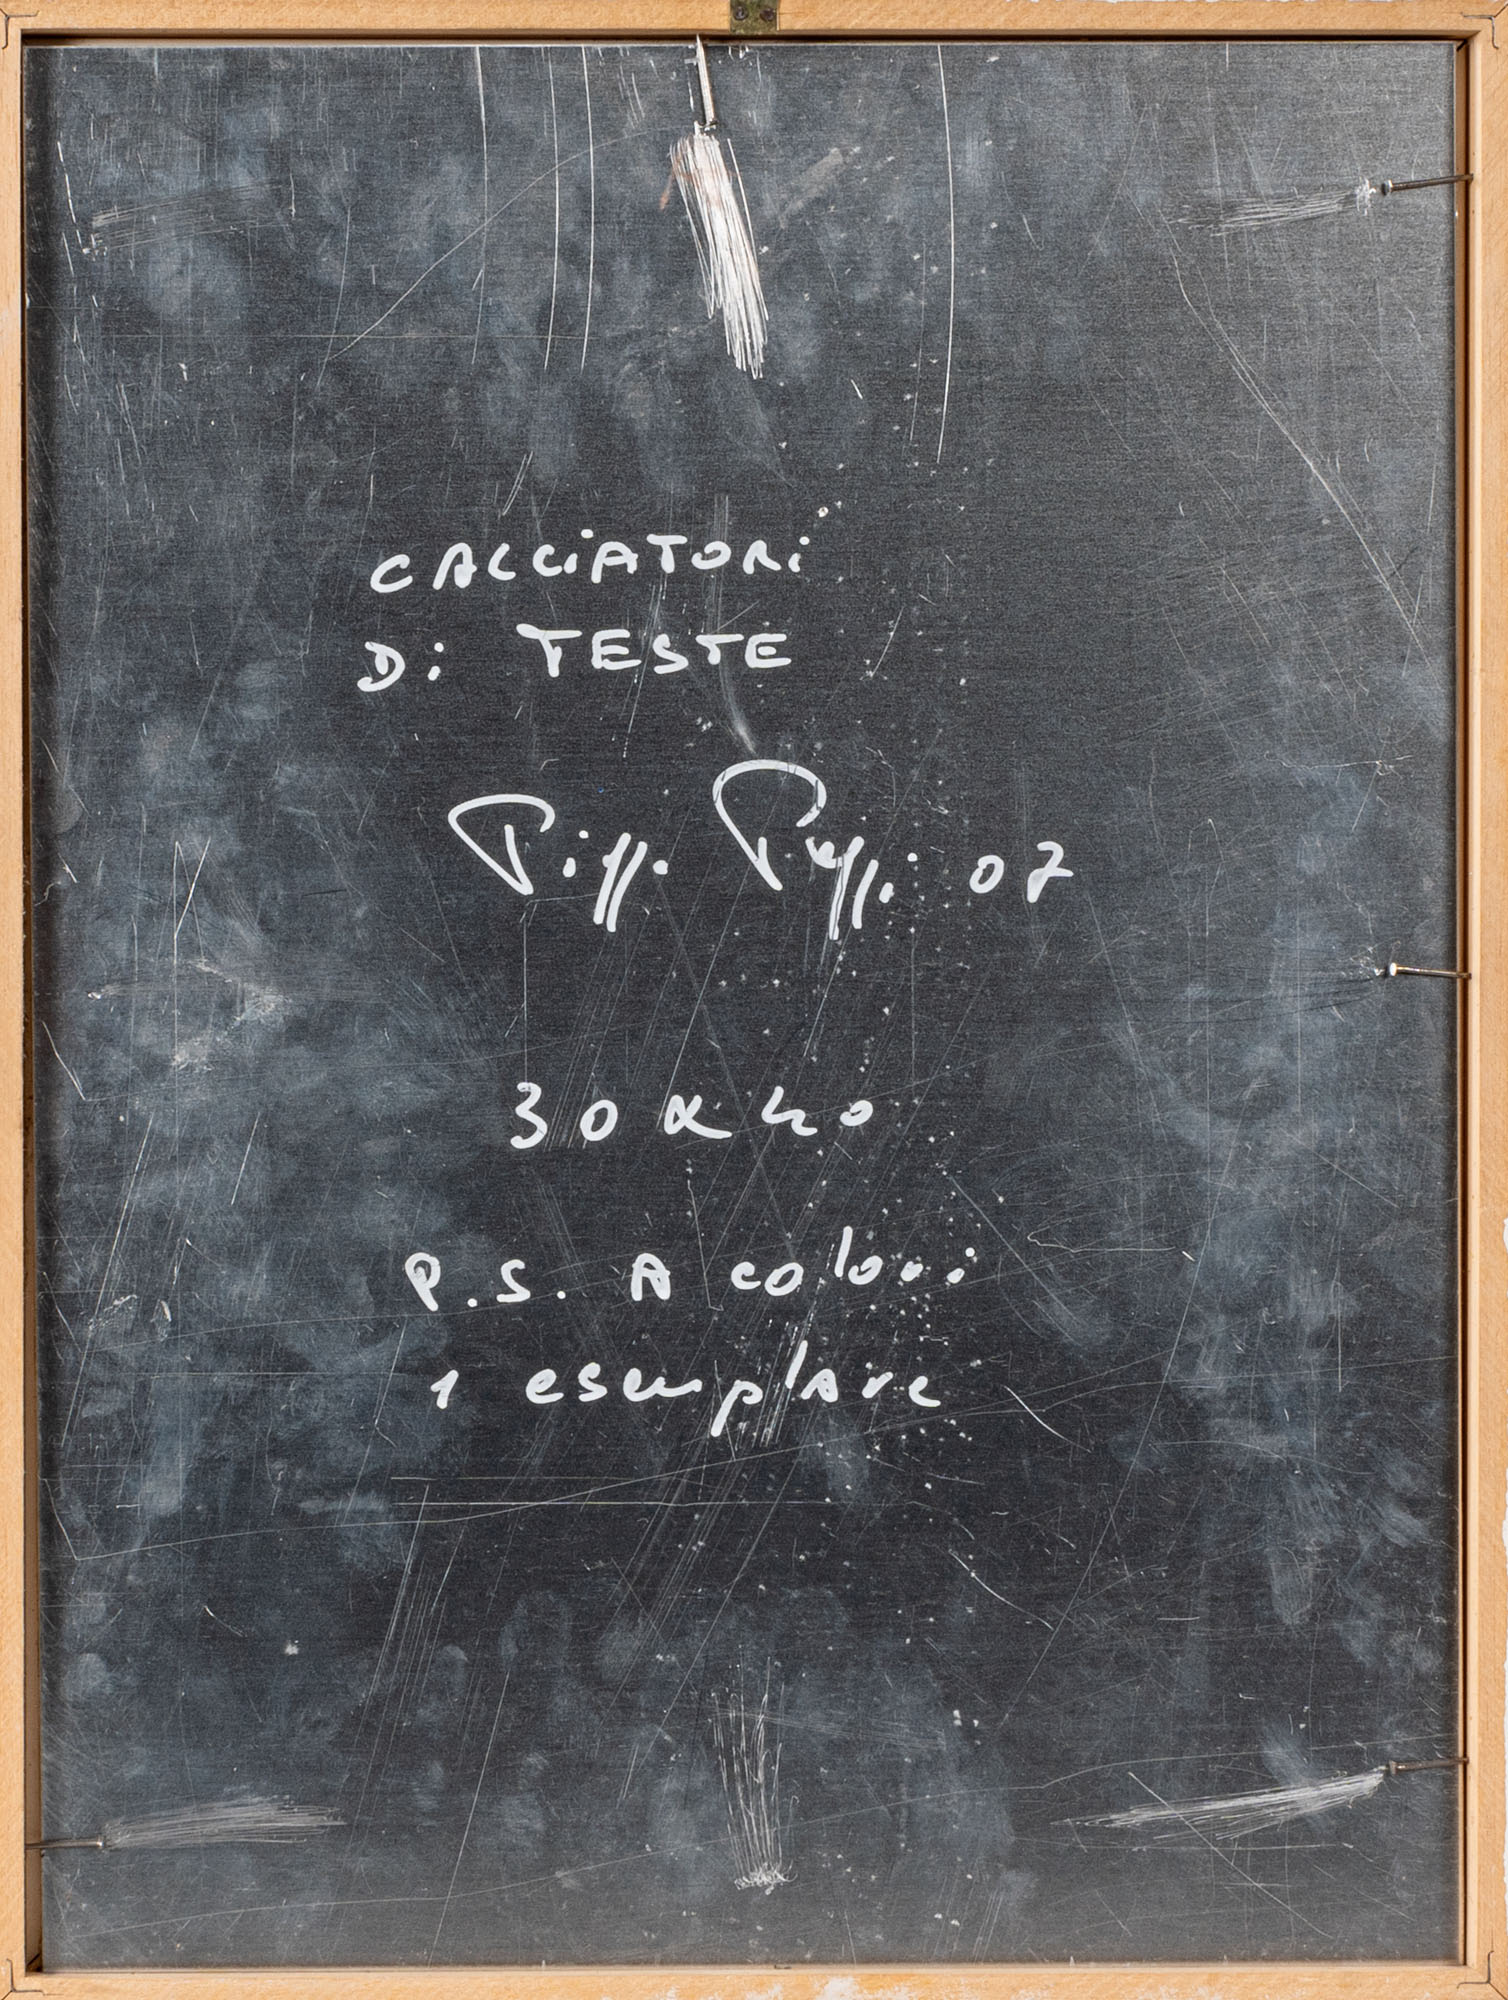 CACCiATORi
Di TESTE
07
30 x 40
P.S. A colori
1 esemplare